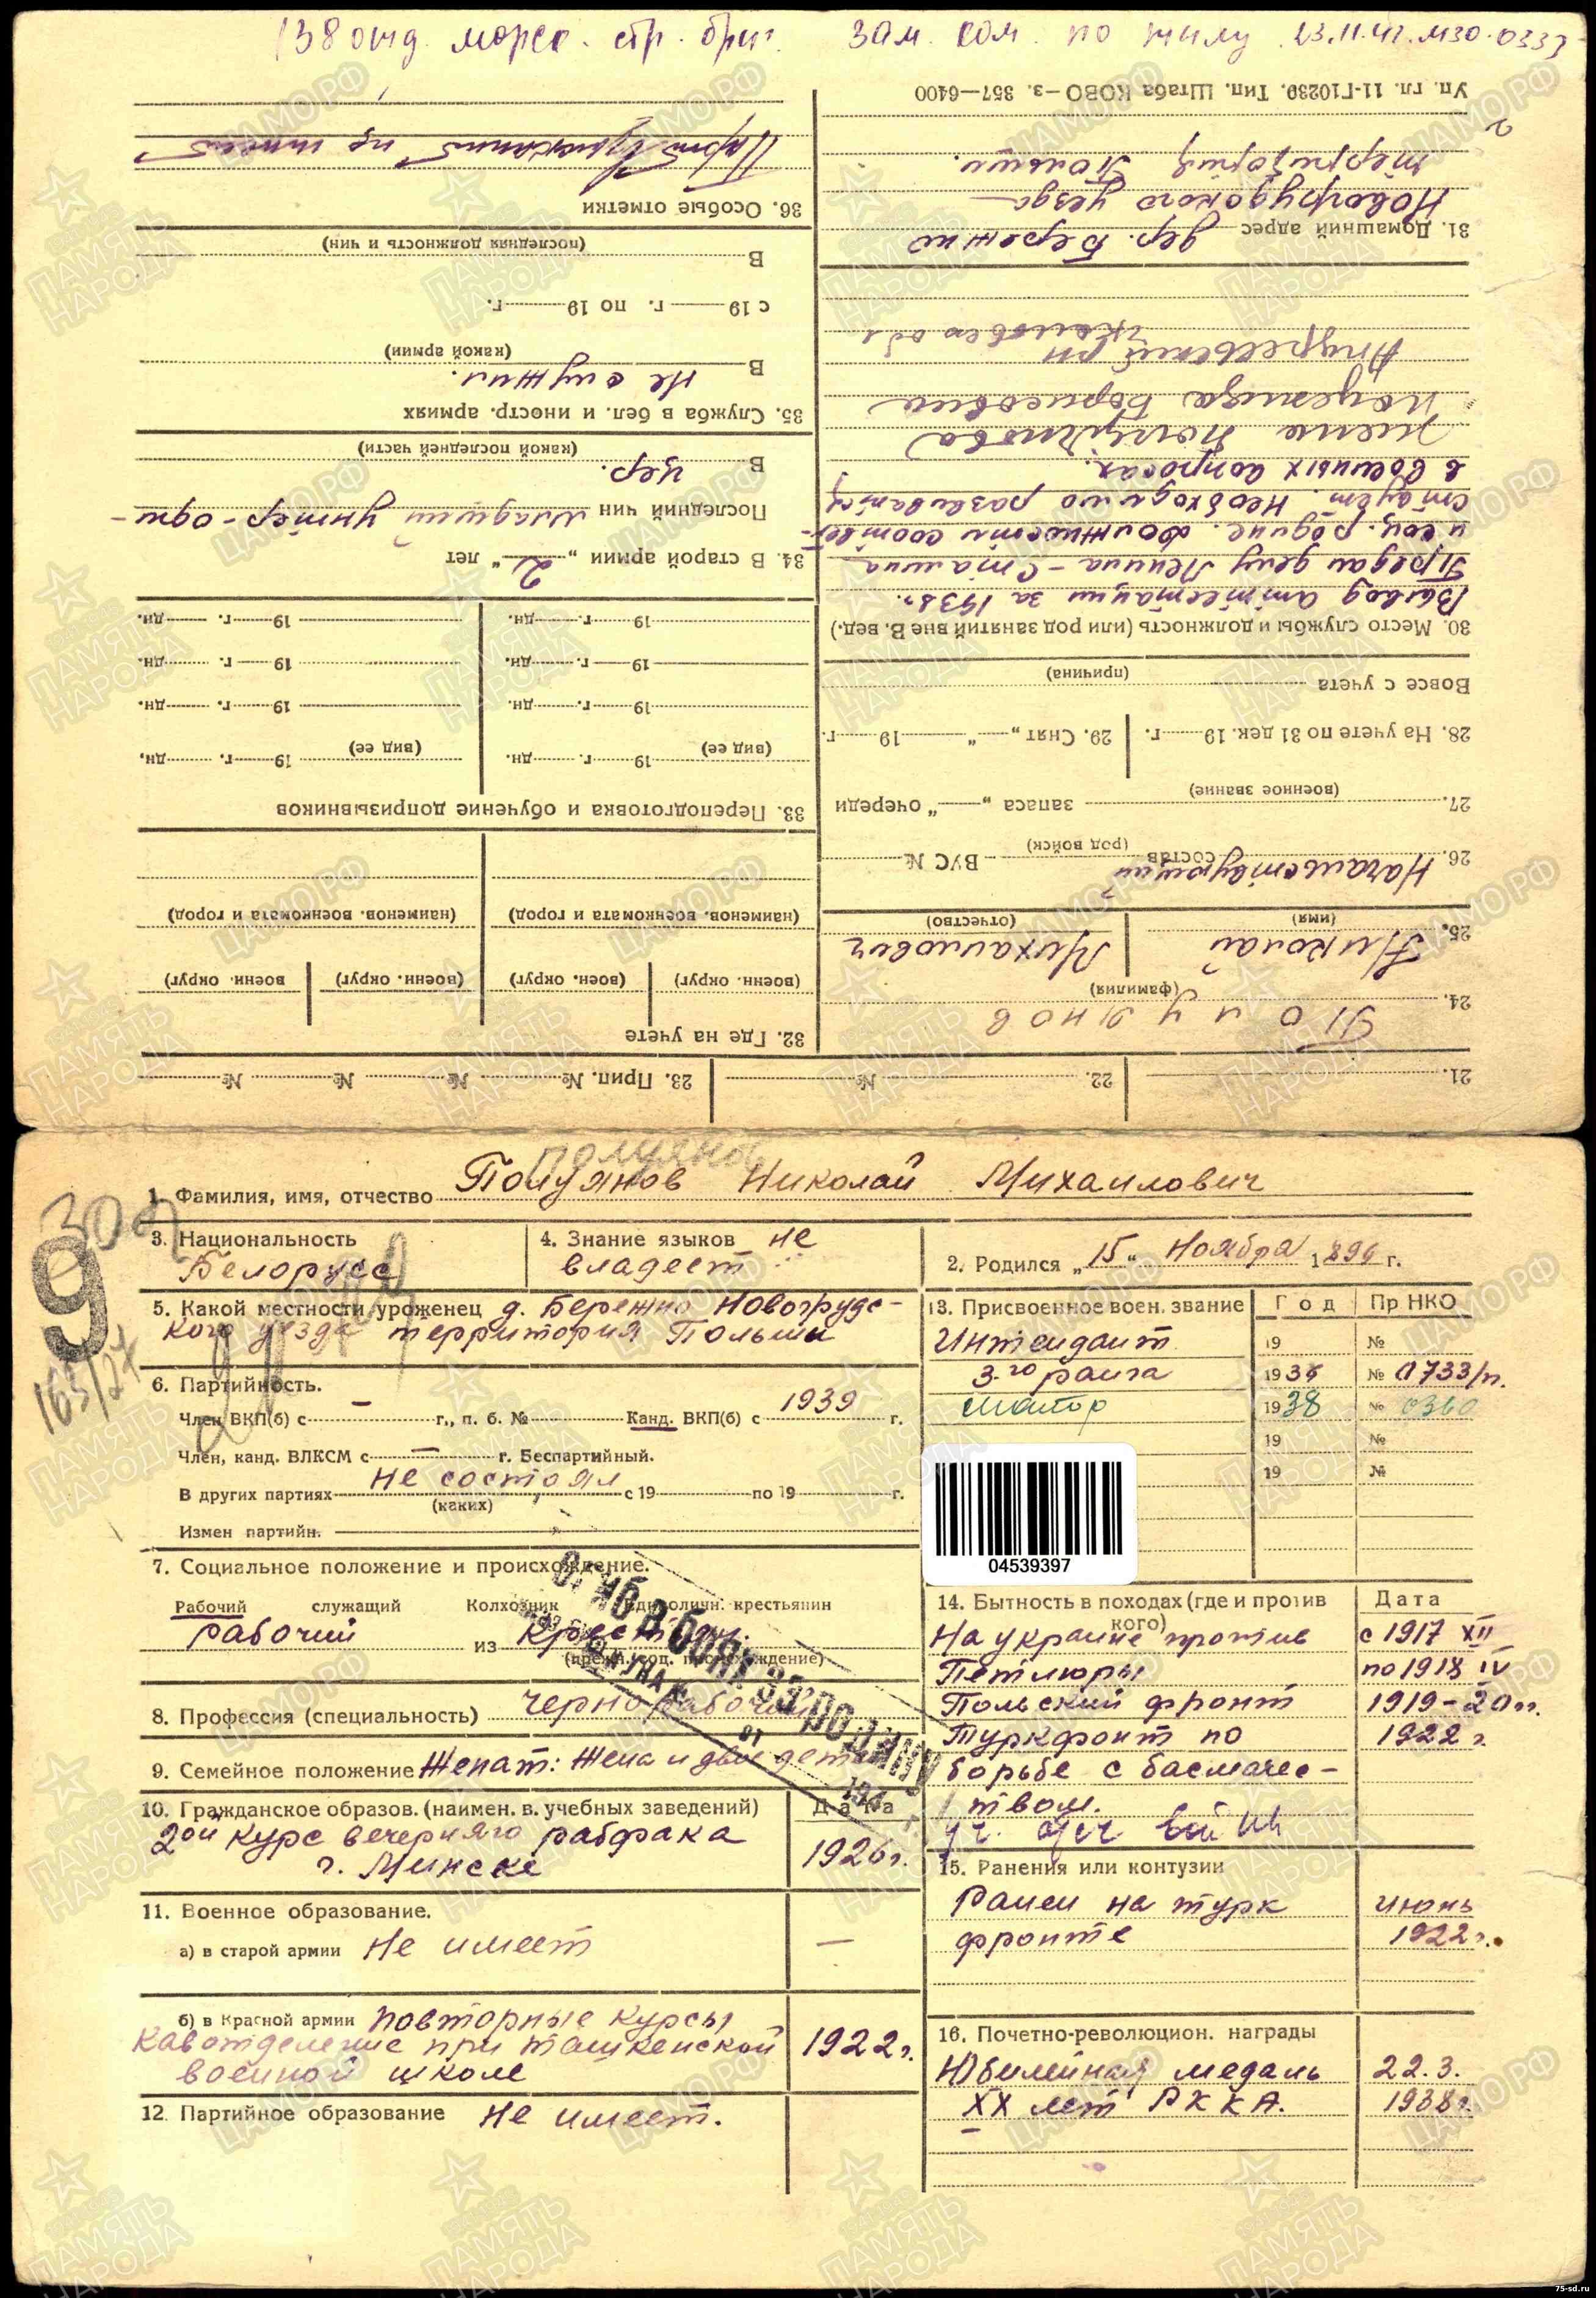 138 отд. морск. стр. бриг. зам. ком. по тылу 23.11.41. №30.0333
Полуянов
1. Фамилия, имя, отчество Полуянов Николай Михаилович
3. Национальность Белорусс
4. Знание языков не владеет
2. Родился „15“ Ноября 1896 г.
5. Какой местности уроженец д. Бережно Новогрудс-
кого уезда территория Польши
6. Партийность.
Член ВКП(б) с — г., п. б. № Канд. ВКП(б) с 1939 г.
Член, канд. ВЛКСМ с — г. Беспартийный.
В других партиях не состоял с 19 по 19 г.
(каких)
Измен партийн.
7. Социальное положение и происхождение.
Рабочий служащий Колхозник Единоличн. крестьянин
рабочий из крестьян.
(прежн. соц. происхождение)
8. Профессия (специальность) чернорабочий
9. Семейное положение Женат: Жена и двое детей
10. Гражданское образов. (наимен. в. учебных заведений) Дата
2ой курс вечерняго рабфака
г. Минске 1926г.
11. Военное образование.
а) в старой армии Не имеет —
б) в Красной армии повторные курсы
кавотделение при ташкенской 1922г.
военной школе
12. Партийное образование Не имеет.
13. Присвоенное воен. звание Год Пр НКО
Интендант 19 №
3-го ранга 1936 № 0733/п.
майор 1938 № 0360
19 №
19 №
04539397
14. Бытность в походах (где и против кого) Дата
На украине против с 1917 XII
Петлюры по 1918 IV
Польский фронт 1919-20гг.
Туркфронт по 1922 г.
борьбе с басмачес-
твом.
уч. отеч войны
15. Ранения или контузии
Ранен на турк июнь
фронте 1922г.
16. Почетно-революцион. награды
Юбилейная медаль 22.3.
XX лет РККА. 1938г.
9
163/27
за Родину
21. 22. № 23. Прип. № № № №
24. Полуянов
(фамилия)
25. Николай Михаилович
(имя) (отчество)
26. Начальствующий состав ВУС №
(род войск)
27. запаса „ “ очереди
(военное звание)
28. На учете по 31 дек. 19 г. 29. Снят „ “ 19 г.
Вовсе с учета
(причина)
30. Место службы и должность (или род занятий вне В. вед.)
Вывод аттестации за 1938г.
Предан делу Ленина-Сталина
и соц. родине. Должности соответ-
ствует. Необходимо развиваться
в военных вопросах.
жена Полуянова
надежда Борисовна
31. Домашний адрес дер. Бережно
Новогрудского уезда
территория Польши.
Уп. гл. 11-Г10239. Тип. Штаба КОВО—з. 357—6400
32. Где на учете
(воен. округ) (воен. округ) (военн. округ) военн. округ)
(наименов. военкомата и город) (наименов. военкомата и город)
33. Переподготовка и обучение допризывников
19 г. дн. 19 г. дн.
(вид ее) (вид ее)
19 г. дн. 19 г. дн.
19 г. дн. 19 г. дн.
19 г. дн. 19 г. дн.
34. В старой армии „2“ лет
Последний чин младший унтер-офи-
В цер.
(какой последней части)
35. Служба в бел. и иностр. армиях
В не служил.
(какой армии)
с 19 г. по 19 г.
В
(последняя должность и чин)
36. Особые отметки
75-sd.ru